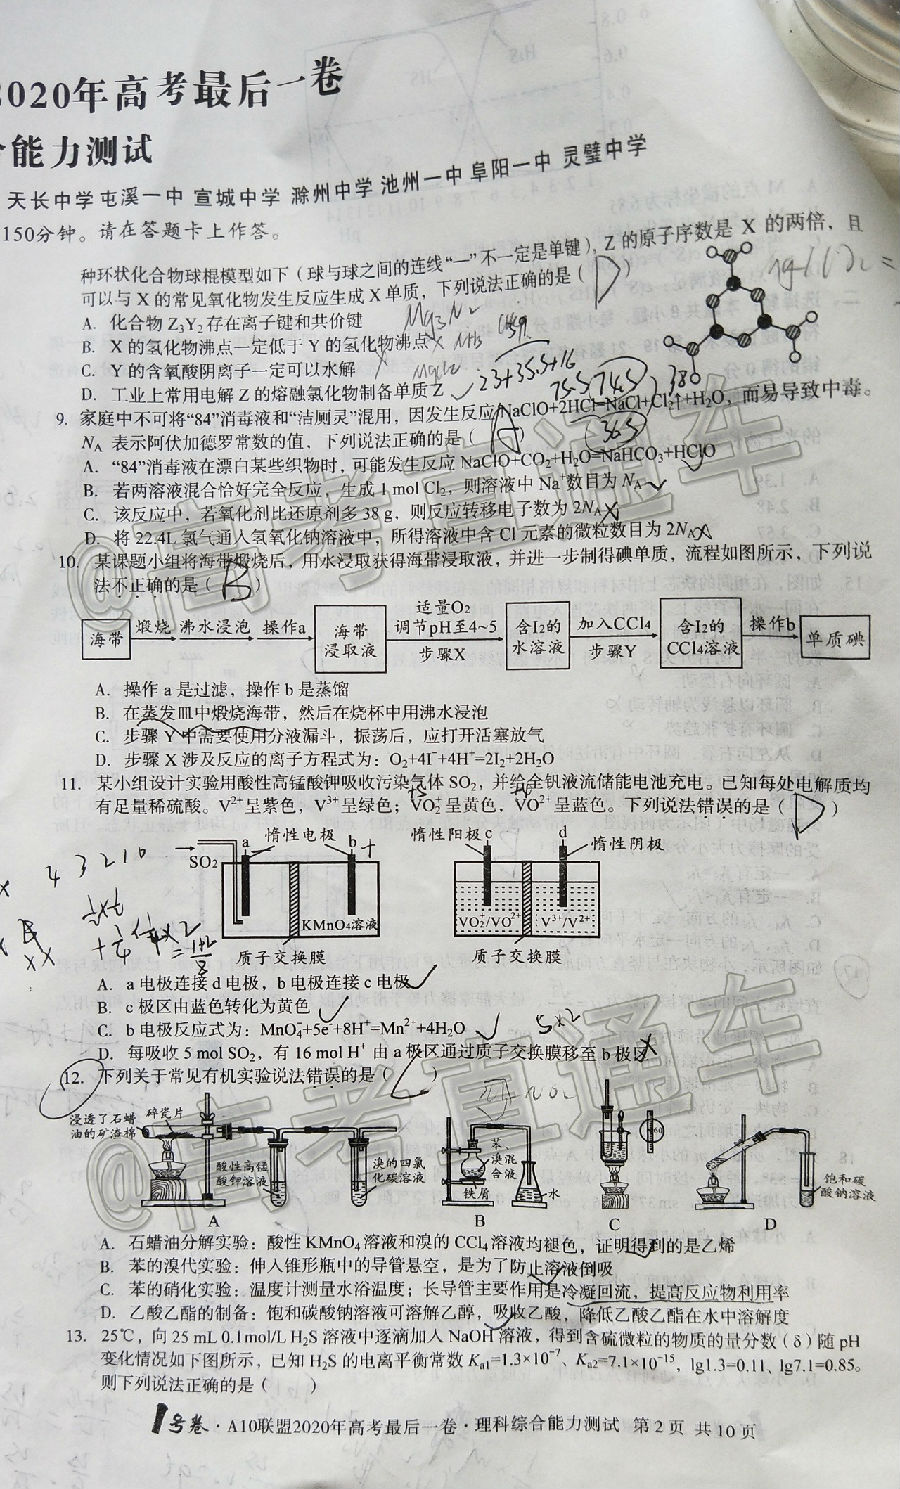 2020年高考最后一卷
合能力测试
天长中学 屯溪一中 宣城中学 滁州中学 池州一中 阜阳一中 灵璧中学
150分钟。请在答题卡上作答。
种环状化合物球棍模型如下（球与球之间的连线“—”不一定是单键），Z的原子序数是 X 的两倍，且
可以与X的常见氧化物发生反应生成X单质，下列说法正确的是（ D ）
A. 化合物Z₃Y₂存在离子键和共价键
B. X的氢化物沸点一定低于Y的氢化物沸点
C. Y的含氧酸阴离子一定可以水解
D. 工业上常用电解Z的熔融氯化物制备单质Z
Mg₃N₂
23+35.5+16
75.5 74.5
36.5
380
9. 家庭中不可将“84”消毒液和“洁厕灵”混用，因发生反应NaClO+2HCl=NaCl+Cl₂↑+H₂O，而易导致中毒。
Nᴀ 表示阿伏加德罗常数的值，下列说法正确的是（ A ）
A. “84”消毒液在漂白某些织物时，可能发生反应 NaClO+CO₂+H₂O=NaHCO₃+HClO
B. 若两溶液混合恰好完全反应，生成1 mol Cl₂，则溶液中Na⁺数目为Nᴀ
C. 该反应中，若氧化剂比还原剂多38 g，则反应转移电子数为2Nᴀ
D. 将22.4L氯气通入氢氧化钠溶液中，所得溶液中含Cl元素的微粒数目为2Nᴀ
10. 某课题小组将海带煅烧后，用水浸取获得海带浸取液，并进一步制得碘单质，流程如图所示，下列说
法不正确的是（ B ）
海带 煅烧 沸水浸泡 操作a 海带浸取液 适量O₂ 调节pH至4~5 步骤X 含I₂的水溶液 加入CCl₄ 步骤Y 含I₂的CCl₄溶液 操作b 单质碘
A. 操作a是过滤，操作b是蒸馏
B. 在蒸发皿中煅烧海带，然后在烧杯中用沸水浸泡
C. 步骤Y中需要使用分液漏斗，振荡后，应打开活塞放气
D. 步骤X涉及反应的离子方程式为：O₂+4I⁻+4H⁺=2I₂+2H₂O
11. 某小组设计实验用酸性高锰酸钾吸收污染气体SO₂，并给全钒液流储能电池充电。已知每处电解质均
有足量稀硫酸。V²⁺呈紫色，V³⁺呈绿色；VO₂⁺呈黄色，VO²⁺呈蓝色。下列说法错误的是（ D ）
惰性电极 惰性阳极 c d 惰性阴极
SO₂ a b +
KMnO₄溶液 VO₂⁺/VO²⁺ V³⁺/V²⁺
质子交换膜 质子交换膜
4 3 2 1 0
A. a电极连接d电极，b电极连接c电极
B. c极区由蓝色转化为黄色
C. b电极反应式为：MnO₄⁻+5e⁻+8H⁺=Mn²⁺+4H₂O
5×2
D. 每吸收5 mol SO₂，有16 mol H⁺由a极区通过质子交换膜移至b极区
12. 下列关于常见有机实验说法错误的是（ ）
浸透了石蜡油的矿渣棉 碎瓷片
酸性高锰酸钾溶液 溴的四氯化碳溶液
苯、溴混合液 铁屑 水
饱和碳酸钠溶液
A B C D
A. 石蜡油分解实验：酸性KMnO₄溶液和溴的CCl₄溶液均褪色，证明得到的是乙烯
B. 苯的溴代实验：伸入锥形瓶中的导管悬空，是为了防止溶液倒吸
C. 苯的硝化实验：温度计测量水浴温度；长导管主要作用是冷凝回流，提高反应物利用率
D. 乙酸乙酯的制备：饱和碳酸钠溶液可溶解乙醇，吸收乙酸，降低乙酸乙酯在水中溶解度
13. 25℃，向25 mL 0.1mol/L H₂S溶液中逐滴加入NaOH溶液，得到含硫微粒的物质的量分数（δ）随pH
变化情况如下图所示，已知H₂S的电离平衡常数Ka₁=1.3×10⁻⁷、Ka₂=7.1×10⁻¹⁵，lg1.3=0.11，lg7.1=0.85。
则下列说法正确的是（ ）
1号卷·A10联盟2020年高考最后一卷·理科综合能力测试 第2页 共10页
@高考直通车
@高考直通车